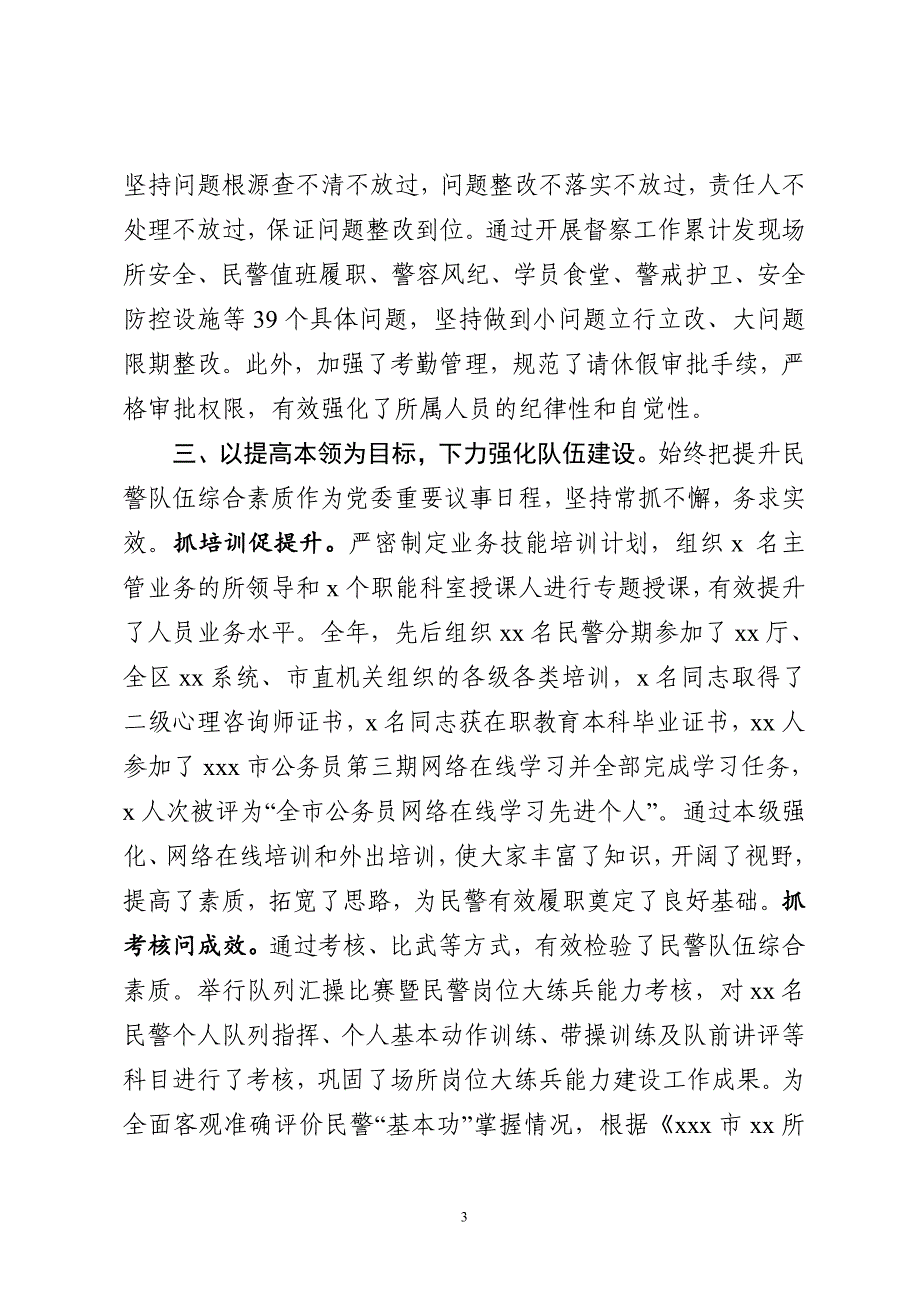 坚持问题根源查不清不放过，问题整改不落实不放过，责任人不
处理不放过，保证问题整改到位。通过开展督察工作累计发现场
所安全、民警值班履职、警容风纪、学员食堂、警戒护卫、安全
防控设施等 39 个具体问题，坚持做到小问题立行立改、大问题
限期整改。此外，加强了考勤管理，规范了请休假审批手续，严
格审批权限，有效强化了所属人员的纪律性和自觉性。
三、以提高本领为目标，下力强化队伍建设。始终把提升民
警队伍综合素质作为党委重要议事日程，坚持常抓不懈，务求实
效。抓培训促提升。严密制定业务技能培训计划，组织 x 名主
管业务的所领导和 x 个职能科室授课人进行专题授课，有效提升
了人员业务水平。全年，先后组织 xx 名民警分期参加了 xx 厅、
全区 xx 系统、市直机关组织的各级各类培训，x 名同志取得了
二级心理咨询师证书，x 名同志获在职教育本科毕业证书，xx 人
参加了 xxx 市公务员第三期网络在线学习并全部完成学习任务，
x 人次被评为“全市公务员网络在线学习先进个人”。通过本级强
化、网络在线培训和外出培训，使大家丰富了知识，开阔了视野，
提高了素质，拓宽了思路，为民警有效履职奠定了良好基础。抓
考核问成效。通过考核、比武等方式，有效检验了民警队伍综合
素质。举行队列汇操比赛暨民警岗位大练兵能力考核，对 xx 名
民警个人队列指挥、个人基本动作训练、带操训练及队前讲评等
科目进行了考核，巩固了场所岗位大练兵能力建设工作成果。为
全面客观准确评价民警“基本功”掌握情况，根据《xxx 市 xx 所
3